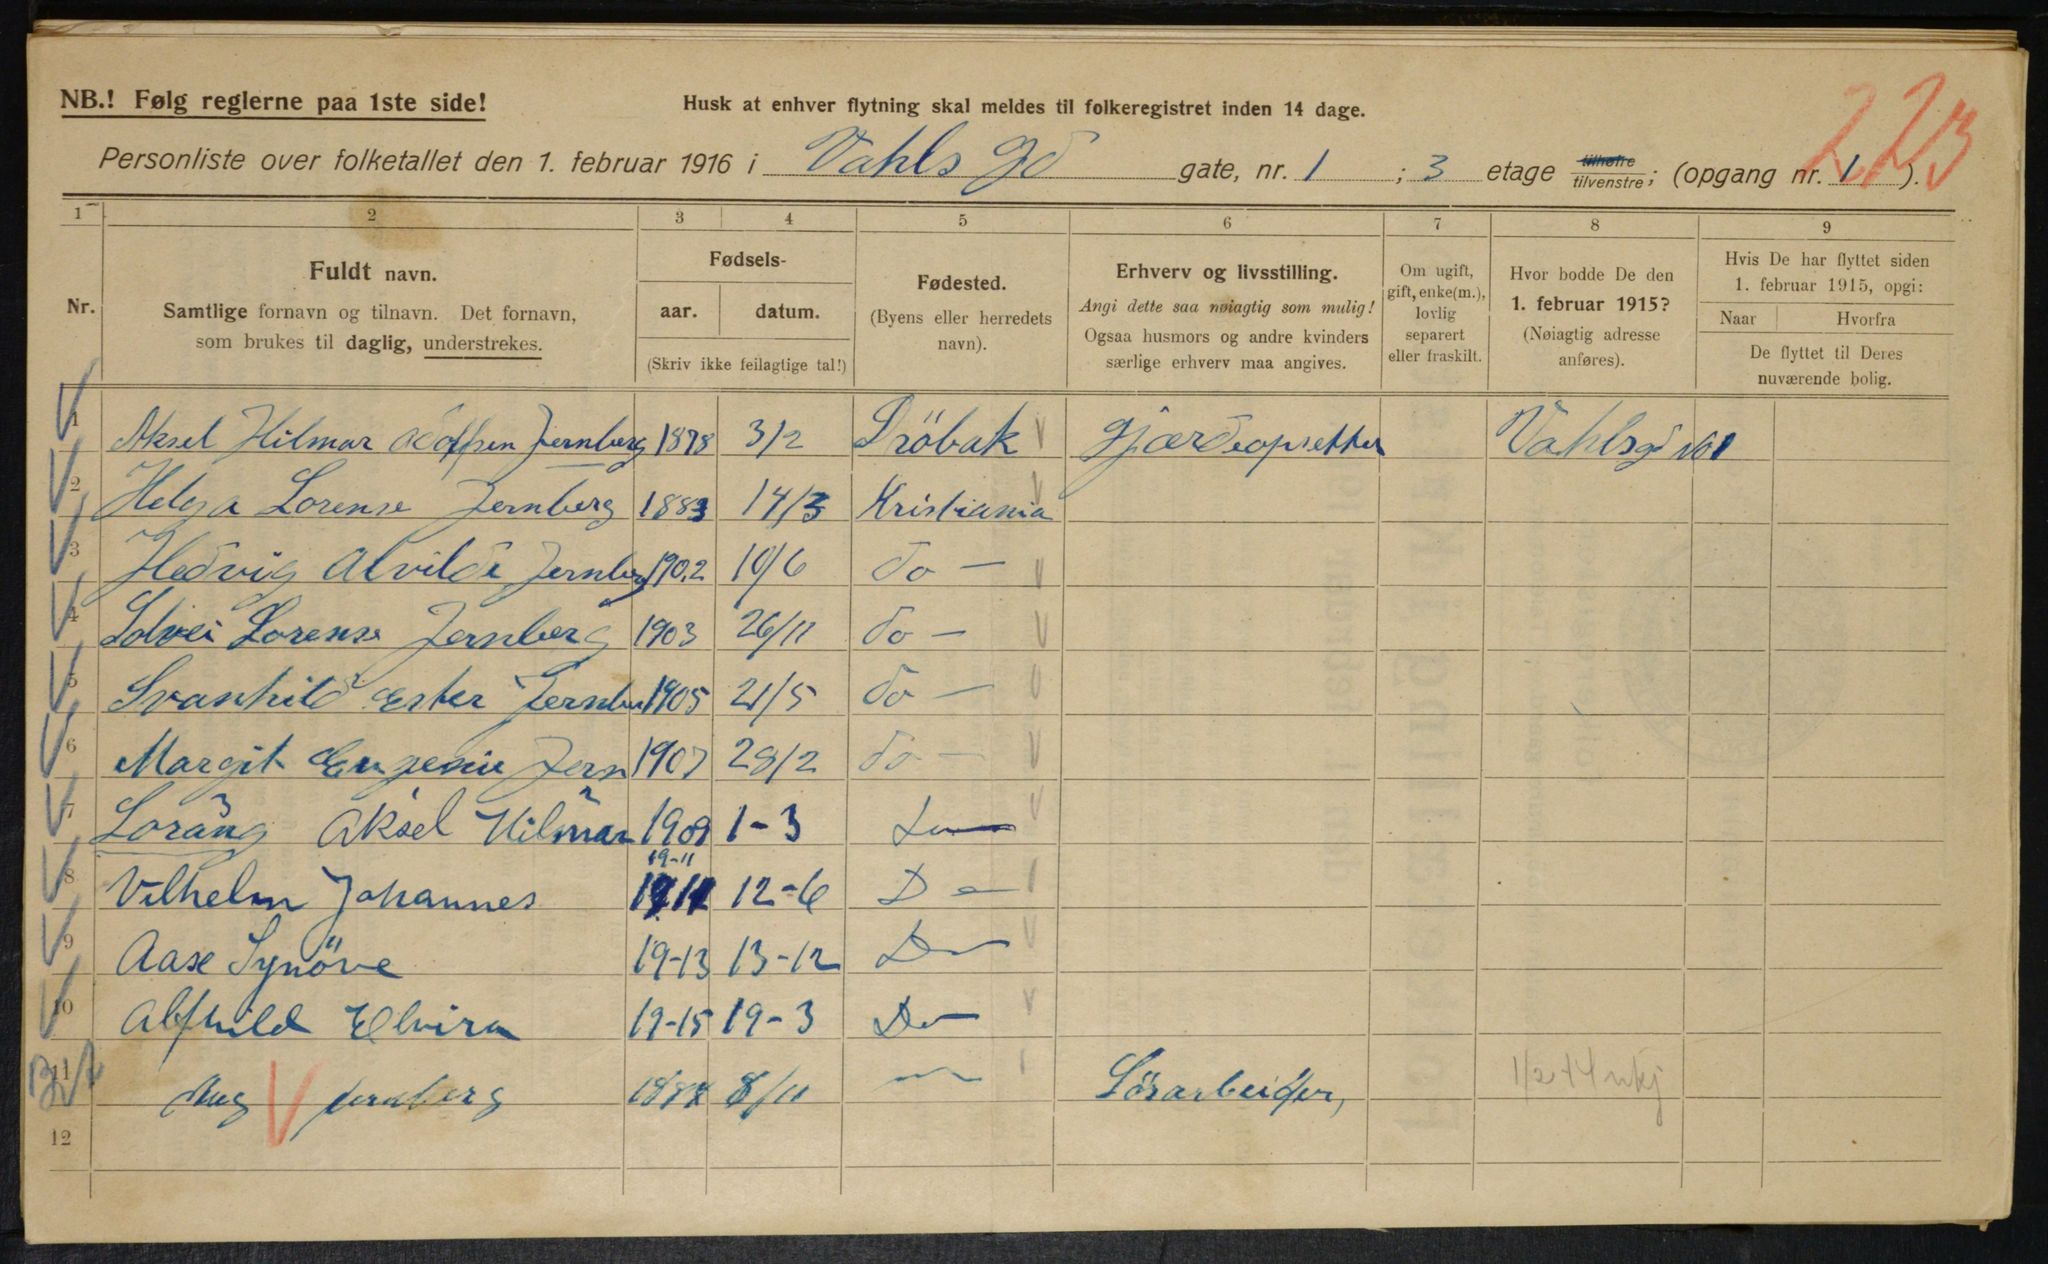 NB.! Følg reglerne paa 1ste side!
Husk at enhver flytning skal meldes til folkeregistret inden 14 dage.
223
Personliste over folketallet den 1. februar 1916 i Vahls gd gate, nr. 1 ; 3 etage tilhøire tilvenstre; (opgang nr. 1 ).
1 2 3 4 5 6 7 8 9
Nr.
Fuldt navn.
Samtlige fornavn og tilnavn. Det fornavn,
som brukes til daglig, understrekes.
Fødsels-
aar. datum.
(Skriv ikke feilagtige tal!)
Fødested.
(Byens eller herredets
navn).
Erhverv og livsstilling.
Angi dette saa nøiagtig som mulig!
Ogsaa husmors og andre kvinders
særlige erhverv maa angives.
Om ugift,
gift, enke(m.),
lovlig
separert
eller fraskilt.
Hvor bodde De den
1. februar 1915?
(Nøiagtig adresse
anføres).
Hvis De har flyttet siden
1. februar 1915, opgi:
Naar Hvorfra
De flyttet til Deres
nuværende bolig.
1 Aksel Hilmar Adolfsen Jernberg 1878 3/2 Dröbak Gjærdeopsetter Vahlsgd No 1
2 Helga Lorense Jernberg 1883 14/3 Kristiania
3 Hedvig Alvilde Jernberg 1902 10/6 do —
4 Solvei Lorense Jernberg 1903 26/11 do —
5 Svanhild Ester Jernber 1905 21/5 do —
6 Margit Eugenie Jern 1907 28/2 do —
7 Lorang Aksel Hilmar 1909 1-3 do
19-11
8 Vilhelm Johannes 12-6 Do
9 Aase Synöve 19-13 13-12 Do
10 Alfhild Elvira 19-15 19-3 Do
11 Aug Jernberg 8/11 — Lösarbeider,
12